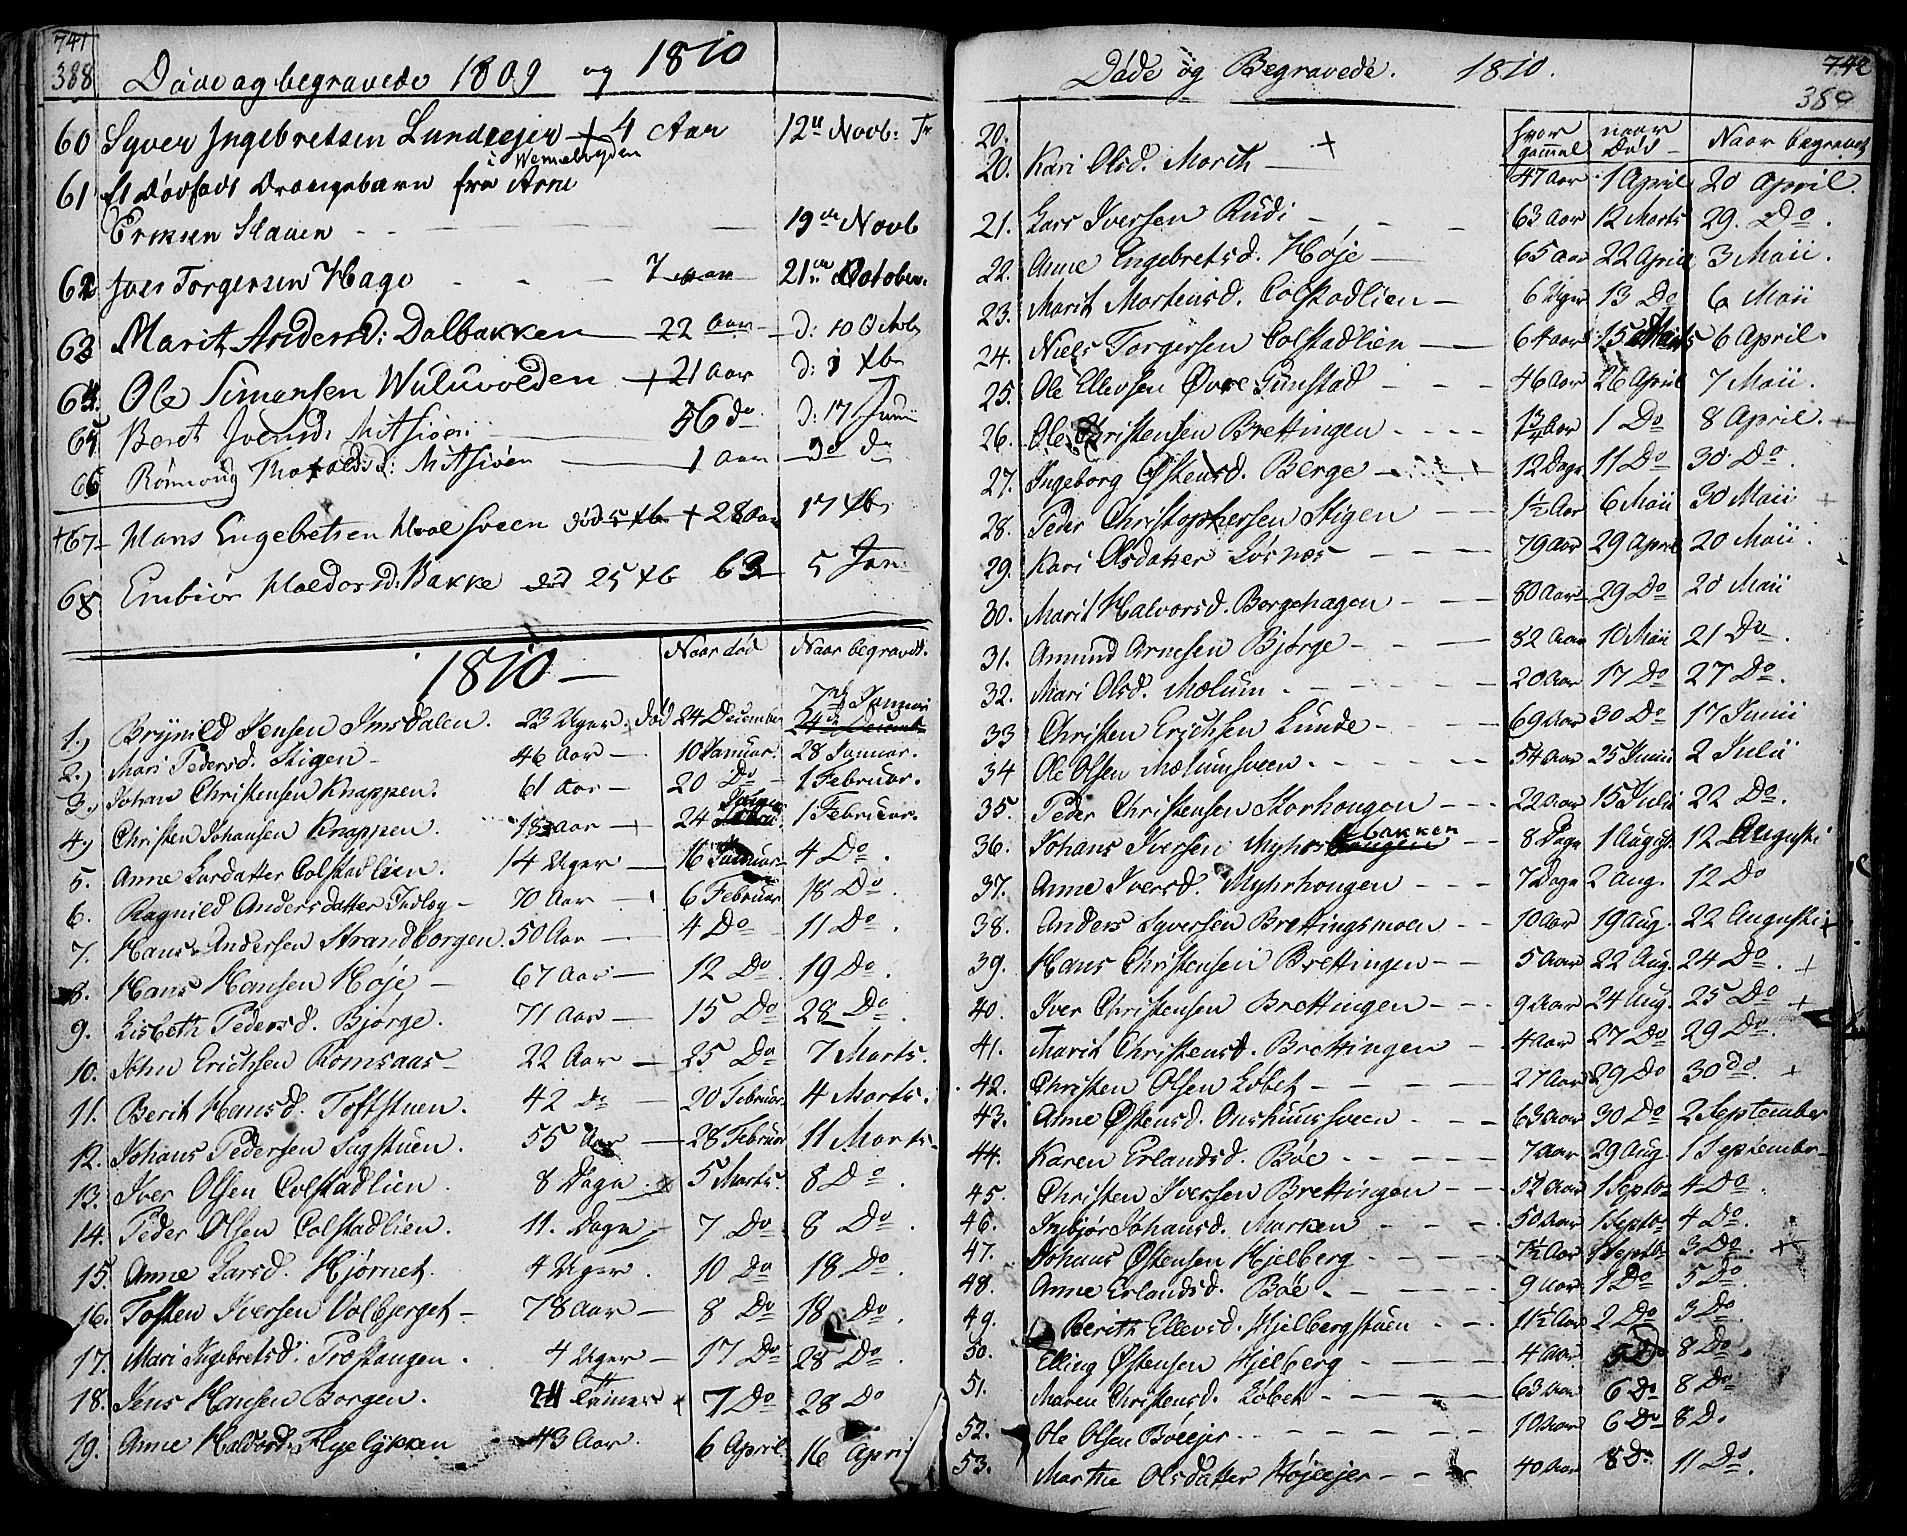 741
388 Døde og begravede 1809 og 1810
60 Syver Ingebretsen Lundeejer + 4 Aar 12te Novb: Tr
i Wemelugden
61 Et Dødfødt Drængebarn fra Arne
Eriksen Haven - - 19de Novb
62 Joen Torgersen Hage - - 7 Aar 21de October.
63 Marit Andersd: Dalbakken 22 Aar d: 10 Octobr
64. Ole Simensen Wuluvolden + 21 Aar d: 3 Xbr
65 Berit Joensd: Mitsiøen 56 do d: 17 Junii
66 Rønnoug Thovaldsd: Mitsiøen 1 Aar do do
+67 Hans Engebretsen Moesveen død 5 Xbr + 28 Aar 17 Xbr
68 Embiør Haldorsd: Bakke død 25 Xb 63 5 Jan:
1810 — Naar død Naar begravet.
1.) Brynild Jensen Imsdalen. 23 Uger. død 24 December 7de Januari
2.) Mari Pedersd. Stigen - 46 Aar — 10 Januar. 28 Januar.
3.) Johan Christensen Knappen. 61 Aar — 20 Do 1 Februar.
4.) Christen Johansen Knappen. 18 Aar — 24 Januar 1 Februar.
5. Anne Larsdatter Colstadlien. 14 Uger — 16 Januar 4 Do.
6. Ragnild Andersdatter — 70 Aar — 6 Februar 18 Do.
7. Hans Andersen Strandborgen. 50 Aar — 4 Do 11 Do.
8. Hans Hansen Høje — 67 Aar — 12 Do 19 Do.
9. Lisbeth Pedersd. Bjørge. 71 Aar — 15 Do 28 Do.
10. John Erichsen Romsaas — 22 Aar — 25 Do 7 Marts.
11. Berit Hansd. Toftstuen. 42 Do — 20 Februar. 4 Marts.
12. Johans Pedersen Sagstuen. 55 Aar — 28 Februar 11 Marts.
13. Iver Olsen Colstadlien. 8 Dage. 5 Marts. 8 Do.
14. Peder Olsen Colstadlien. 11. Dage 7 Do 8 Do.
15. Anne Larsd. Hjørnet. 4 Uger. 10 Do 18 Do.
16. Tosten Iversen Volbjerget — 78 Aar — 8 Do 18 Do.
17. Mari Ingebretsd. Træstangen. 4 Uger — 17 Do 28 Do.
18. Jens Hansen Borgen. 24 Timer 7 Do 28 Do
19. Anne Haldorsd. Flyelykken 43 Aar. 6 April 16 April
Døde og Begravede. 1810. 742
389
20. hvor gammel naar Død — Naar begravet
20. Kari Olsd. Morth — + 47 Aar 1 April 20 April.
21. Lars Iversen Rudi - - - 63 Aar 12 Marts 29. Do.
22. Anne Engebretsd. Høje — 65 Aar 22 April 3 Maii.
23. Marit Mortensd. Colstadlien — 6 Uger 13 Do 6 Maii
24. Niels Torgersen Colstadlien — 64 Aar 15 Marts 6 April.
25. Ole Ellevsen Øvre Sunstad - - - 46 Aar 26 April 7 Maii.
26. Ole Christensen Brettingen - - - - Aar 1 Do 8 April. +
27. Ingeborg Østensd. Berge - 12 Dage 11 Do 30 Do.
28. Peder Christophersen Stigen - - 1½ Aar 6 Maii 30 Maii +
29. Kari Olsdatter Løsnæs - - - - 79 Aar 29 April 20 Maii.
30. Marit Halvorsd. Bergehagen - - - 80 Aar 29 Do 20 Maii
31. Amund Arnesen Bjørge - - - 82 Aar 10 Maii 21 Do.
32. Mari Olsd. Mælum. - - - - 20 Aar 17 Do 27 Do.
33 Christen Erichsen Lunde - - - 69 Aar 30 Do 17 Junii
34 Ole Olsen Mælumsveen. - - - - 54 Aar 25 Junii 2 Julii
35. Peder Christensen Storhougen - - - 22 Aar 15 Julii 22 Do.
36. Johans Iversen Myhrbakken - - 8 Dage 1 August. 12 Augusti
37. Anne Iversd. Myhrhougen - - - 7 Dage 2 Aug. 12 Do
38. Anders Syversen Brettingsmoen - - 10 Aar 19 Aug. 22 Augusti +
39. Hans Christensen Brettingen - - 5 Aar 22 Aug. 24 Do. +
40. Iver Christensen Brettingen - - - 9 Aar 24 Aug. 25 Do +
41. Marit Christensd. Brettingen - - 4 Aar 27 Do 29 Do.
42. Christen Olsen Løbet - - - - 27 Aar 29 Do 30 do. +
43. Anne Østensd. Aushuussveen - - - 63 Aar 30 Do 2 September
44. Karen Erlandsd. Bøe - - - - - 7 Aar 29 Aug. 1 Septembr
45. Christen Iversen Brettingen - - - 52 Aar 1 Septbr 4 Do.
46. Inbiør Johansd. Marken - - - - 50 Aar 1 Septbr 4 Do.
47. Johans Østensen Hjelberg - - - - 7½ Aar 1 Septb. 3 Do. +
48. Anne Erlandsd. Bøe - - - - - 9 Aar 1 Do 5 Do.
49. Berith Ellevsd. Hjelbergstuen - - - 11½ Aar 2 Do 3 Do.
50. Elling Østensen Hjelberg - - - - - 4 Aar 5 Do 8 Do.
51. Maren Christensd. Løbet - - - - - 63 Aar 6 Do 8 Do
52. Ole Olsen Bøeejer - - - - - - 10 Aar 6 Do 8 D.
53. Marthe Olsdatter Højeejer - - - 40 Aar 8 Do 11 Do.